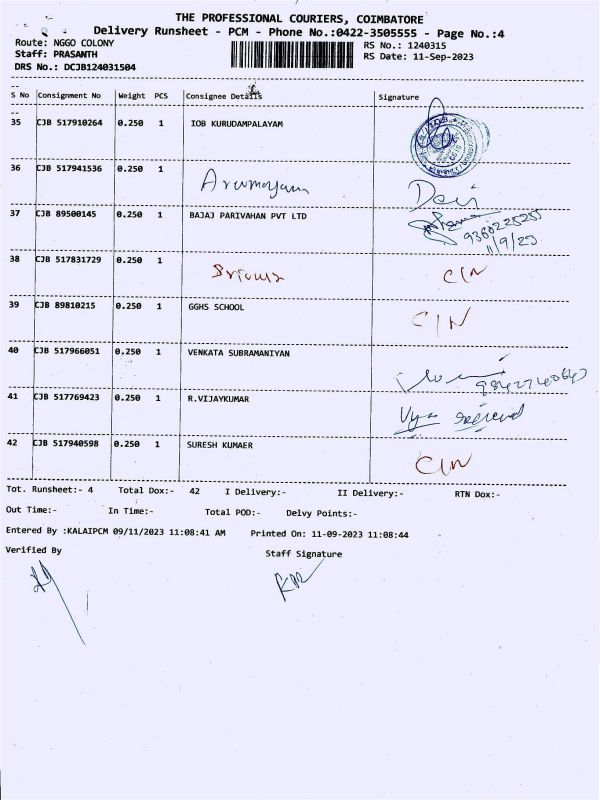 THE PROFESSIONAL COURIERS, COIMBATORE
Delivery Runsheet - PCM - Phone No.:0422-3505555 - Page No.:4
Route: NGGO COLONY RS No.: 1240315
Staff: PRASANTH RS Date: 11-Sep-2023
DRS No.: DCJB124031504
S No Consignment No Weight PCS Consignee Details Signature
35 CJB 517910264 0.250 1 IOB KURUDAMPALAYAM
36 CJB 517941536 0.250 1 Arumugam Devi
37 CJB 89500145 0.250 1 BAJAJ PARIVAHAN PVT LTD
11/9/23
38 CJB 517831729 0.250 1 C/N
39 CJB 89810215 0.250 1 GGHS SCHOOL C/N
40 CJB 517966051 0.250 1 VENKATA SUBRAMANIYAN
41 CJB 517769423 0.250 1 R.VIJAYKUMAR
42 CJB 517940598 0.250 1 SURESH KUMAER C/N
Tot. Runsheet:- 4 Total Dox:- 42 I Delivery:- II Delivery:- RTN Dox:-
Out Time:- In Time:- Total POD:- Delvy Points:-
Entered By :KALAIPCM 09/11/2023 11:08:41 AM Printed On: 11-09-2023 11:08:44
Verified By Staff Signature